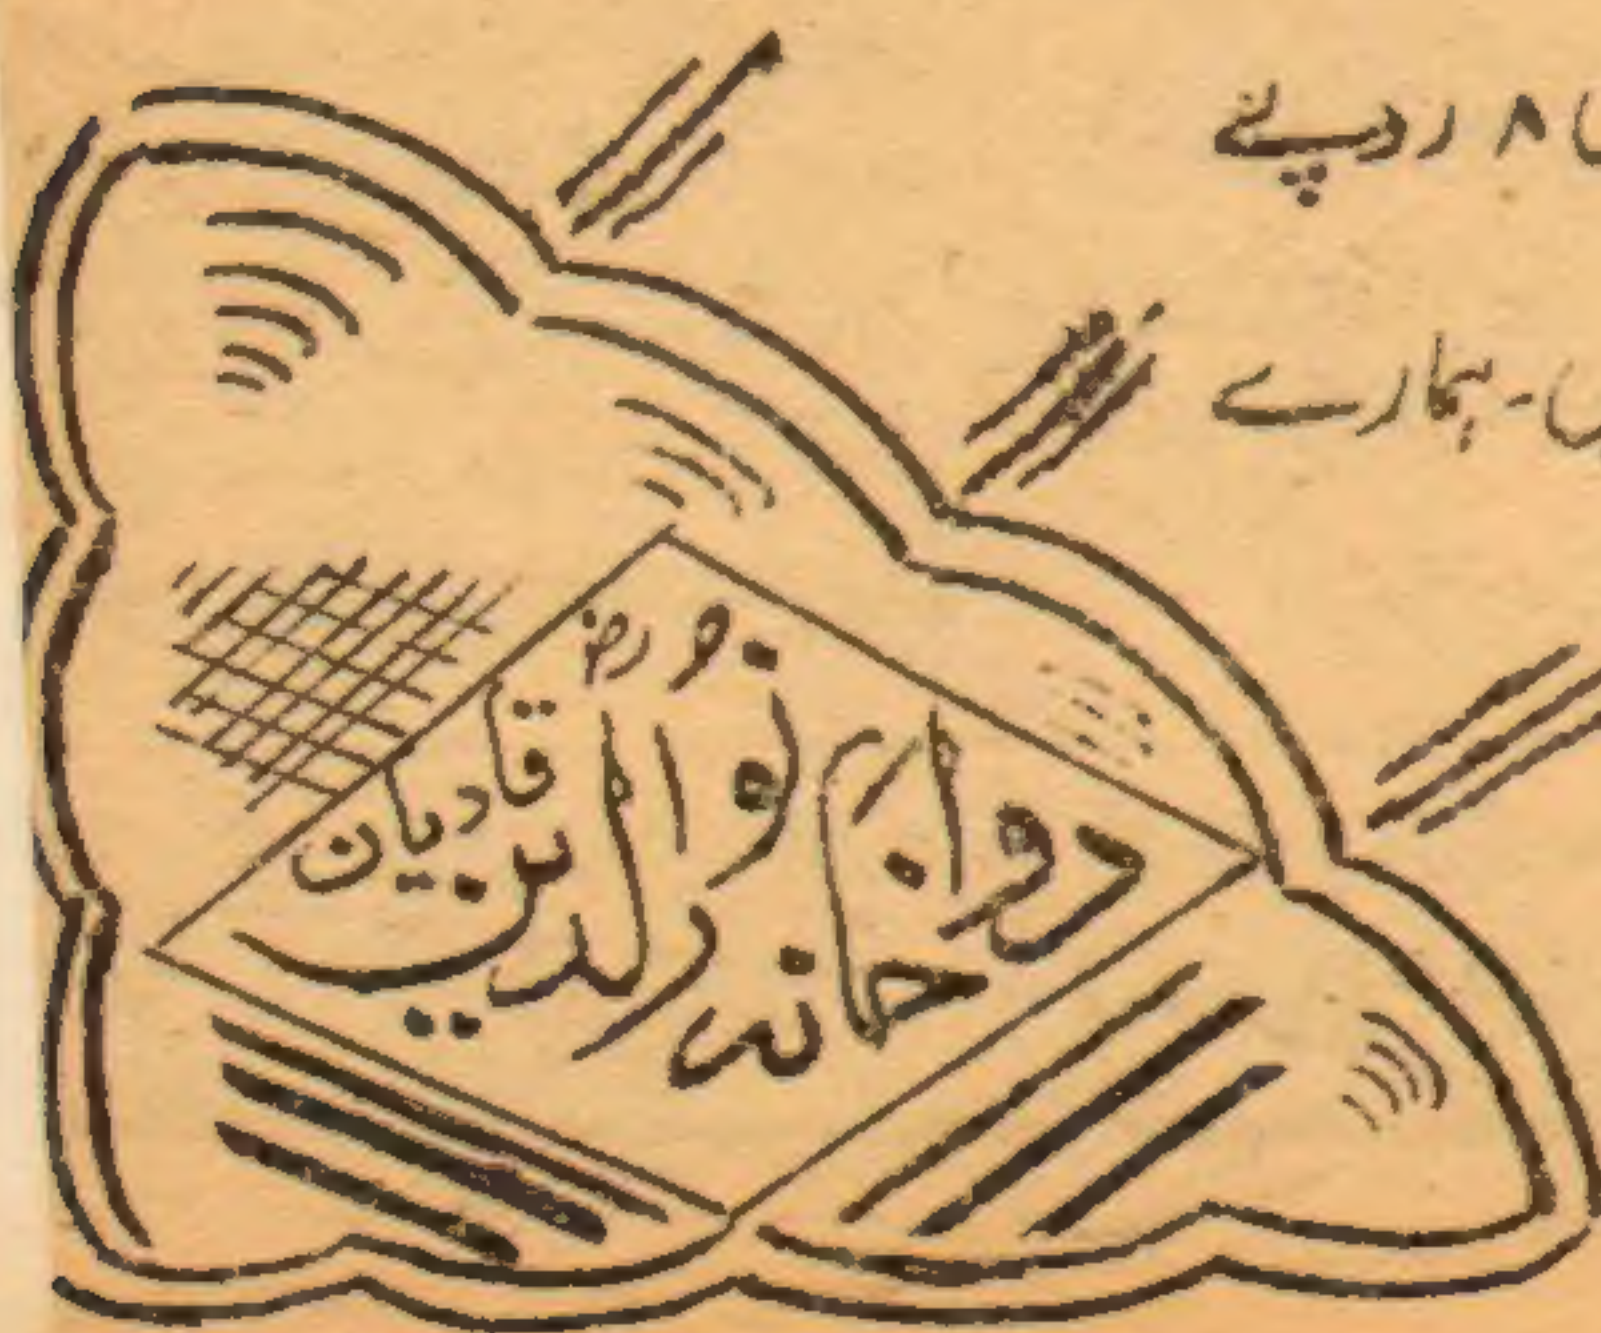 ۸ روپئے
ہمارے
دواخانہ نورالدین رضؓ قادیان